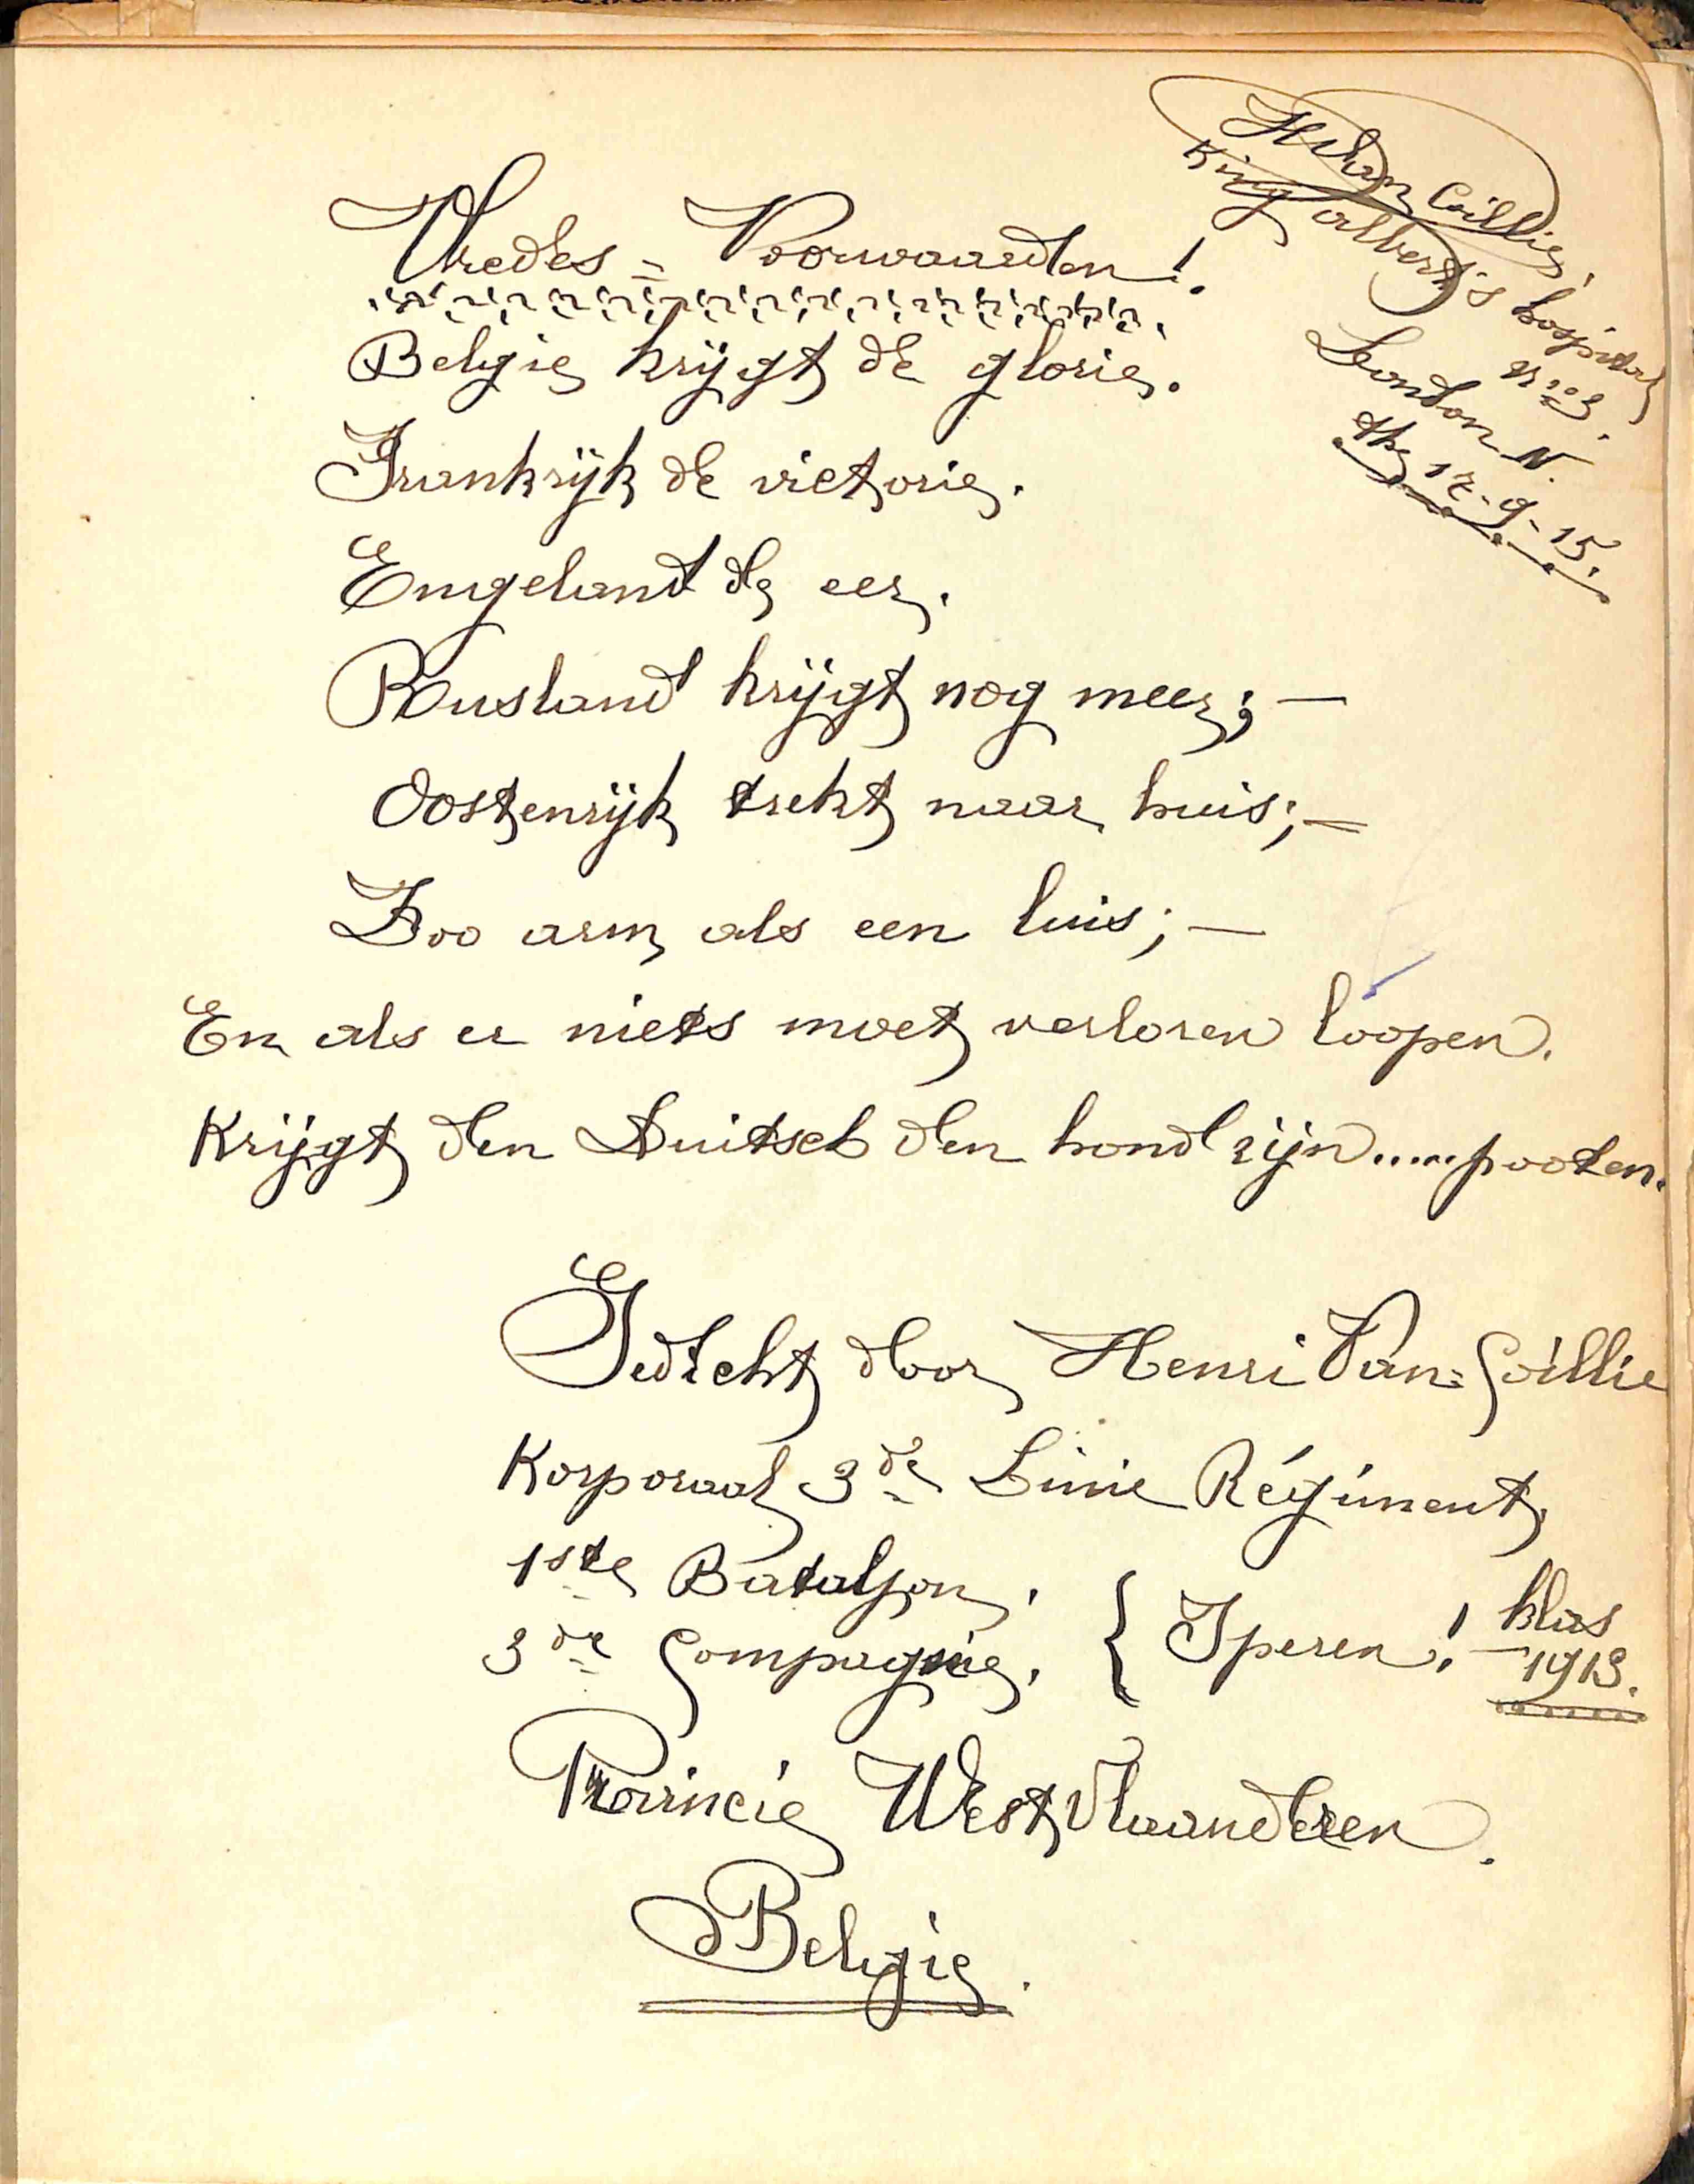 H Van Coillie,
King albert's hospital
N° 3.
London N.
the 17-9-15.
Vredes = Voorwaarden!
Belgie krijgt de glorie.
Frankrijk de victorie.
Engeland de eer.
Rusland krijgt nog meer; —
Oostenrijk trekt naar huis; —
Zoo arm als een luis; —
En als er niets moet verloren loopen.
Krijgt den Duitsch den hond zijn.....pooten.
Gedicht door Henri Van=Coillie
Korporaal 3de Linie Régiment,
1ste Bataljon,
3de Compagnie, { Yperen! — klas 1913.
Provincie West Vlaanderen.
Belgie.